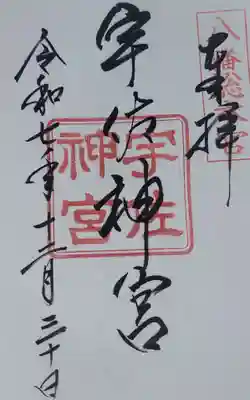 奉拝
八幡総本宮
宇佐神宮
宇佐
神宮
令和七年十二月三十日